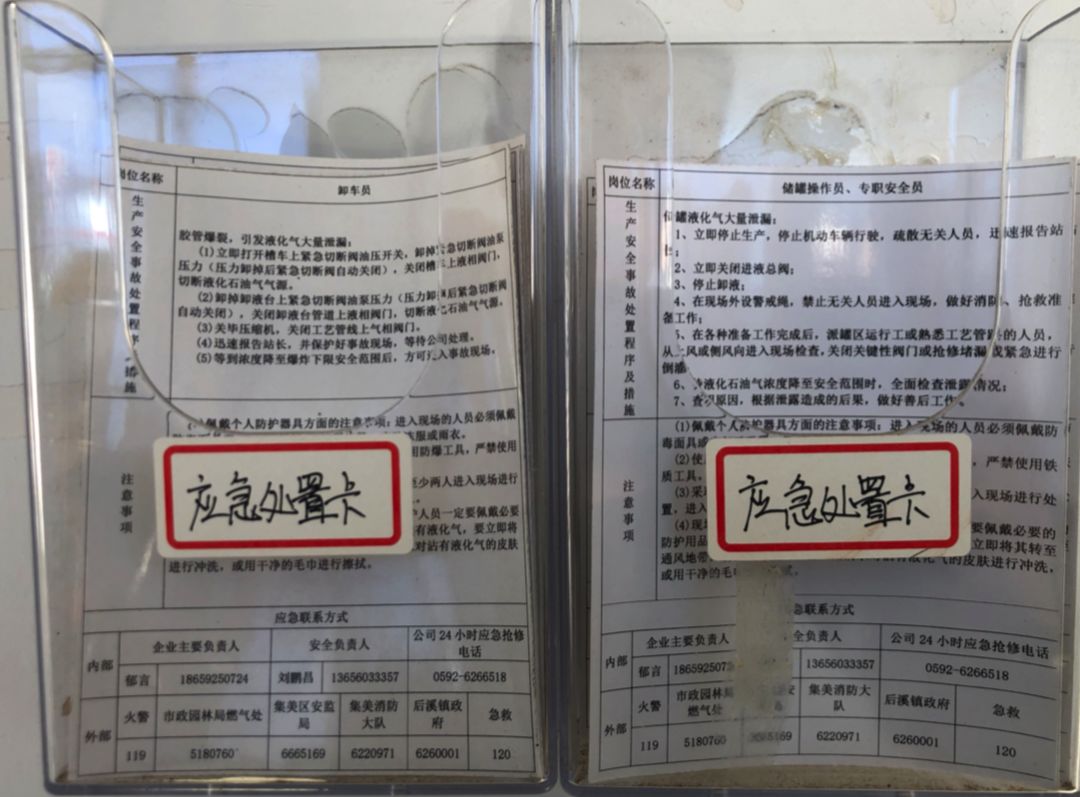 岗位名称 卸车员
生产安全事故处置程序 措施
胶管爆裂，引发液化气大量泄漏：
（1）立即打开槽车上紧急切断阀油压开关，卸掉紧急切断阀油泵
压力（压力卸掉后紧急切断阀自动关闭），关闭槽车上液相阀门，
切断液化石油气气源。
（2）卸掉卸液台上紧急切断阀油泵压力（压力卸掉后紧急切断阀
自动关闭），关闭卸液台管道上液相阀门，切断液化石油气气源。
（3）关毕压缩机，关闭工艺管线上气相阀门。
（4）迅速报告站长，并保护好事故现场，等待公司处理。
（5）等到浓度降至爆炸下限安全范围后，方可进入事故现场。
注意事项
佩戴个人防护器具方面的注意事项：进入现场的人员必须佩戴
服或雨衣。
用防爆工具，严禁使用
至少两人进入现场进行
人员一定要佩戴必要
有液化气，要立即将
对沾有液化气的皮肤
进行冲洗，或用干净的毛巾进行擦拭。
应急处置卡
应急联系方式
内部 企业主要负责人 安全负责人 公司24小时应急抢修电话
郁言 18659250724 刘鹏昌 13656033357 0592-6266518
外部 火警 市政园林局燃气处 集美区安监局 集美消防大队 后溪镇政府 急救
119 5180760 6665169 6220971 6260001 120
岗位名称 储罐操作员、专职安全员
生产安全事故处置程序及措施
储罐液化气大量泄漏：
1、立即停止生产，停止机动车辆行驶，疏散无关人员，迅速报告站
2、立即关闭进液总阀；
3、停止卸液；
4、在现场外设警戒绳，禁止无关人员进入现场，做好消防、抢救准
备工作；
5、在各种准备工作完成后，派罐区运行工或熟悉工艺管路的人员，
从上风或侧风向进入现场检查，关闭关键性阀门或抢修堵漏或紧急进行
倒罐
6、液化石油气浓度降至安全范围时，全面检查泄露情况；
7、查明原因，根据泄露造成的后果，做好善后工作。
注意事项
（1）佩戴个人防护器具方面的注意事项：进入现场的人员必须佩戴防
毒面具或
（2）使 ，严禁使用铁
质工具。
（3）采 入现场进行处
置，进入
（4）现场 要佩戴必要的
防护用品 立即将其转至
通风地带 有液化气的皮肤进行冲洗，
或用干净的毛
应急处置卡
急联系方式
内部 企业主要负责人 全负责人 公司24小时应急抢修电话
郁言 1865925072 13656033357 0592-6266518
外部 火警 市政园林局燃气处 安 局 集美消防大队 后溪镇政府 急救
119 5180760 6220971 6260001 120